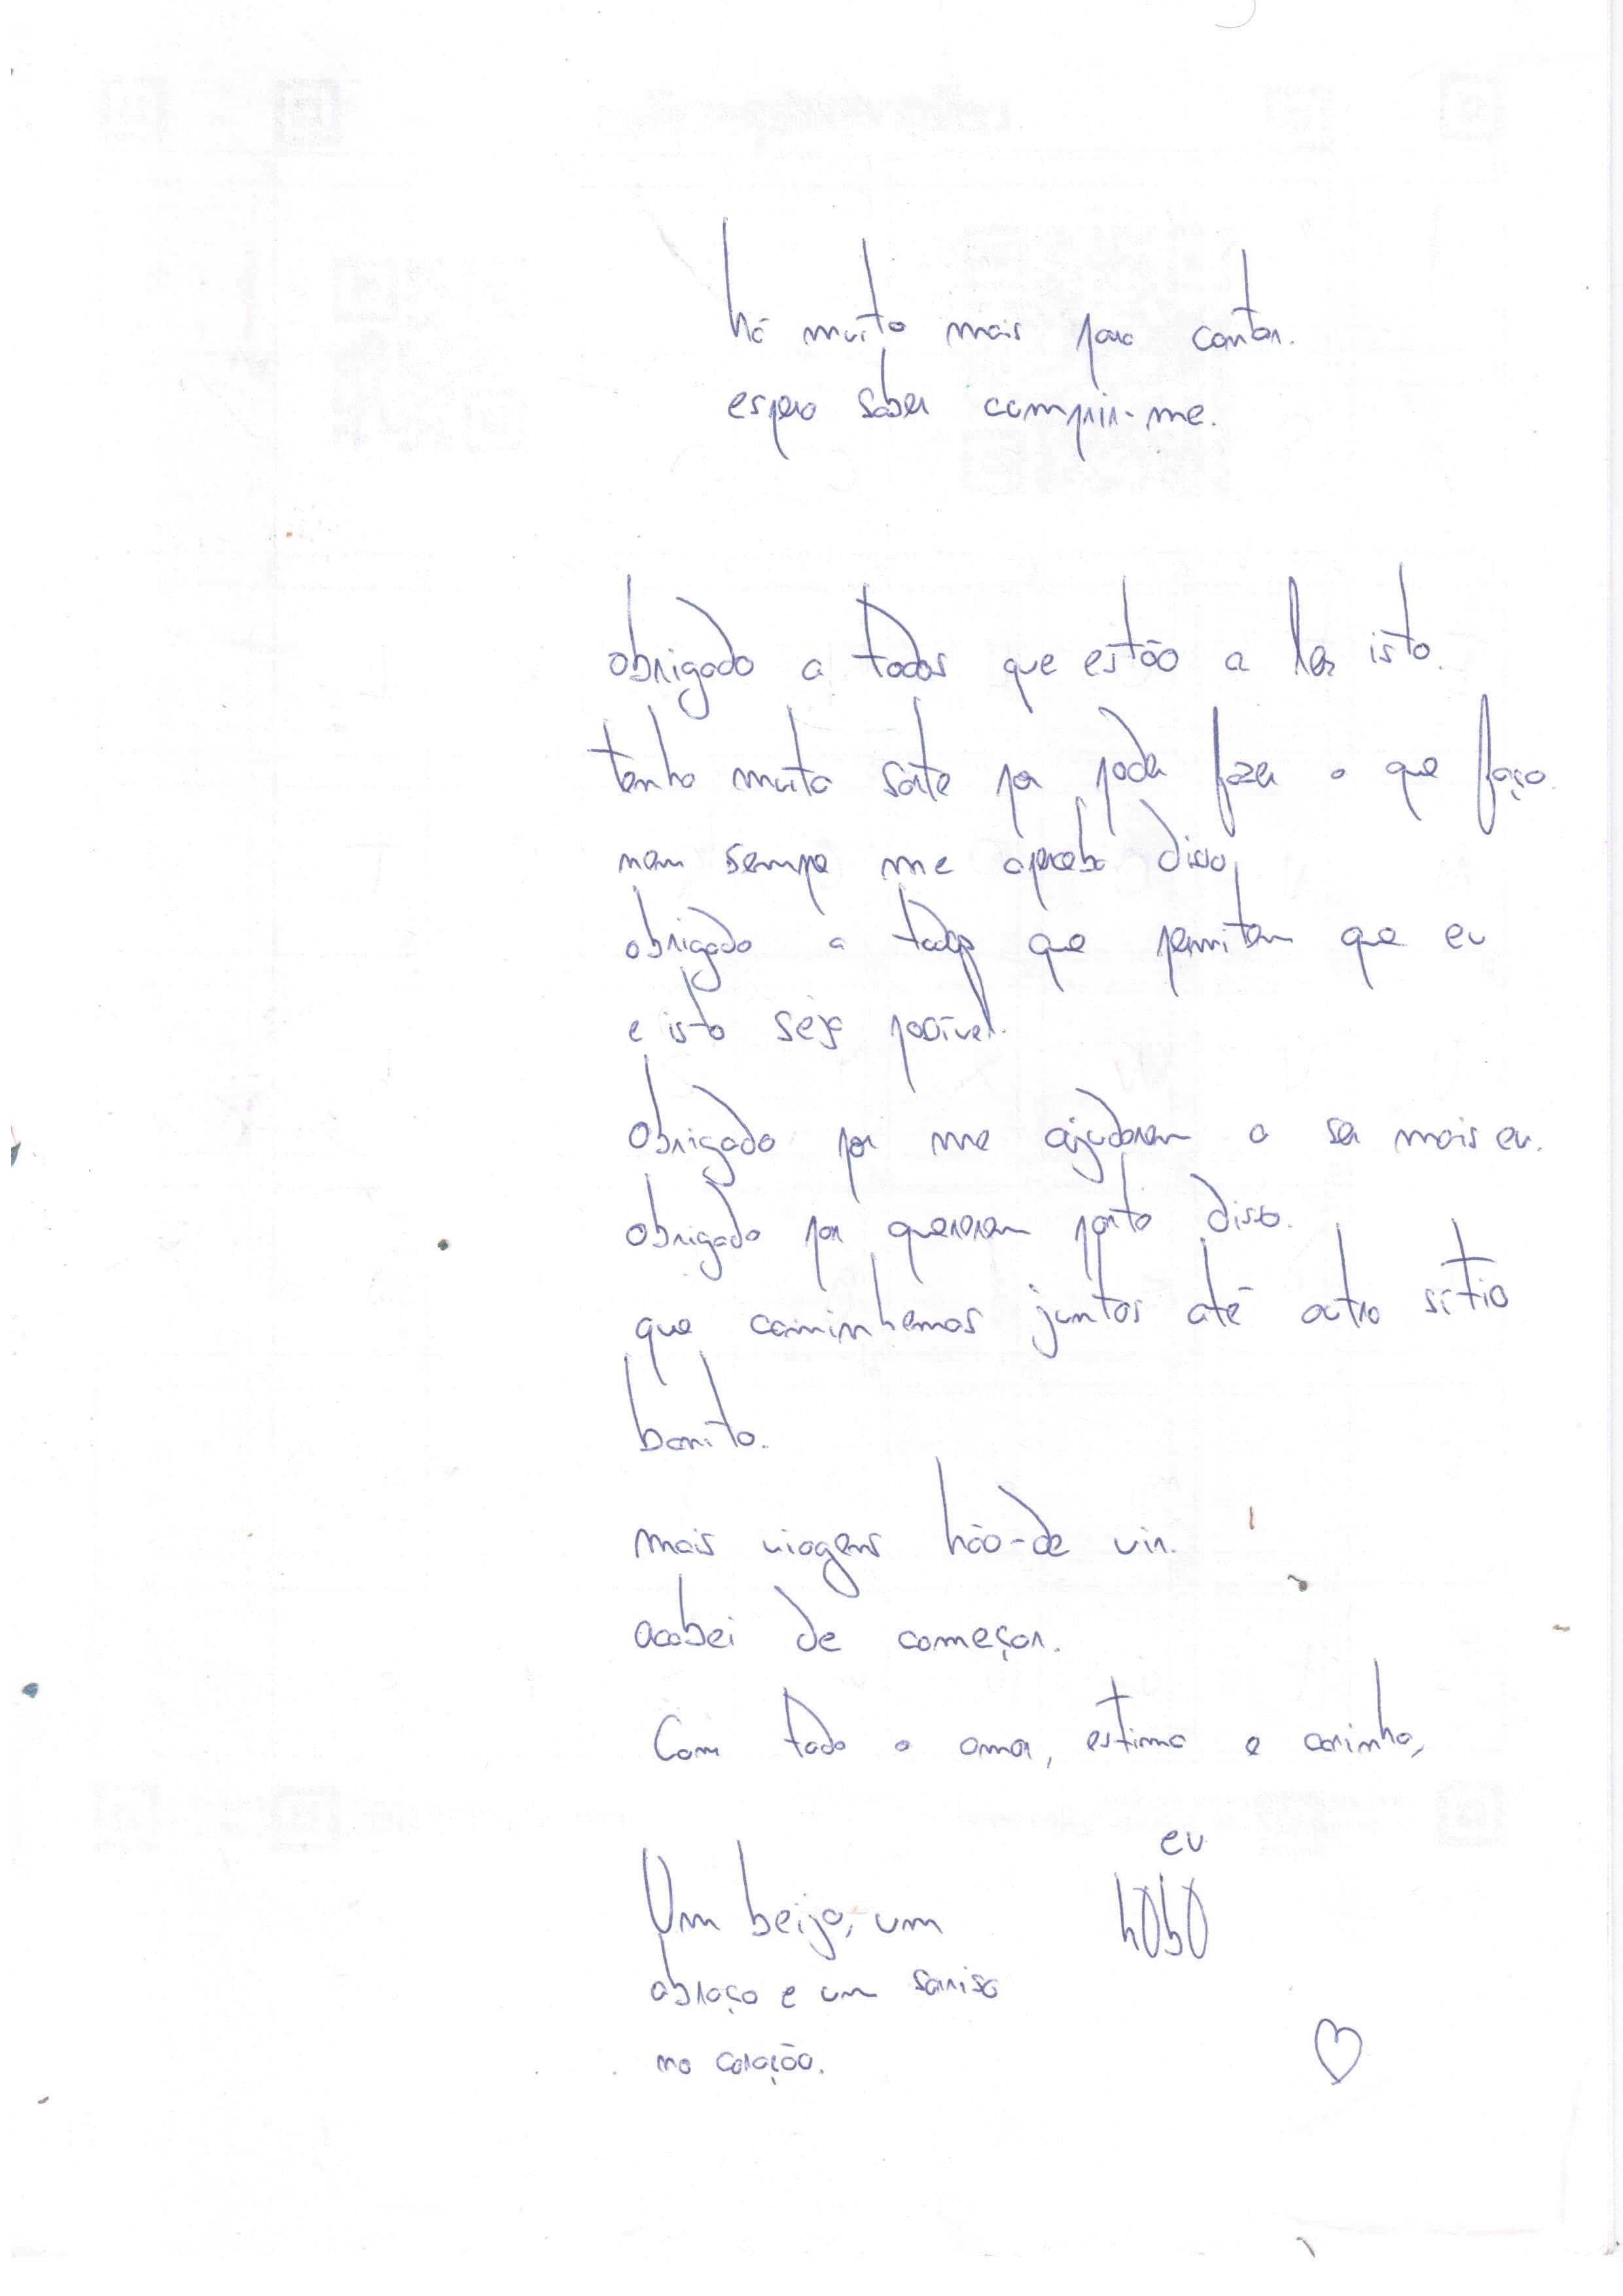 há muito mais para contar.
espero saber cumprir-me.
obrigado a todos que estão a ler isto.
tenho muita sorte por poder fazer o que faço.
nem sempre me apercebo disso.
obrigado a todos que permitem que eu
e isto seja possível.
Obrigado por me ajudarem a ser mais eu.
obrigado por quererem parte disso.
que caminhemos juntos até outro sítio
bonito.
mais viagens hão-de vir.
acabei de começar.
Com todo o amor, estima e carinho,
eu
hObO
Um beijo, um
abraço e um sorriso
no coração.